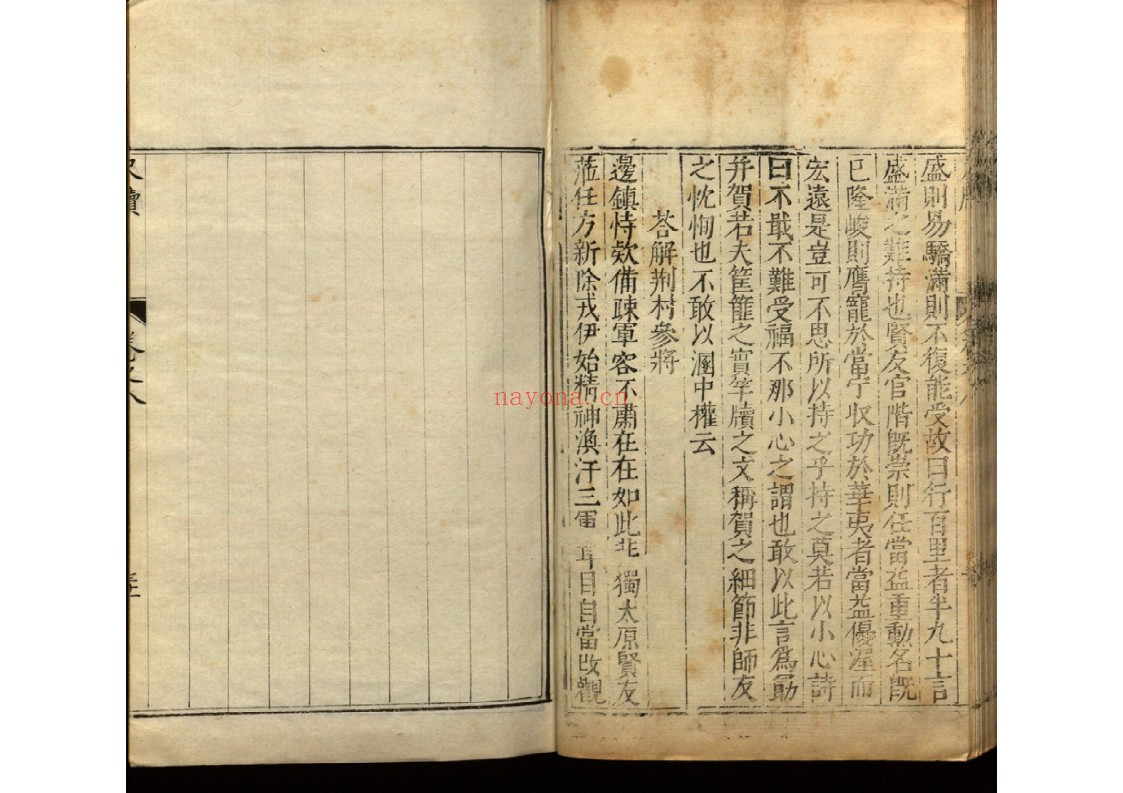 盛則易驕滿則不復能受故曰行百里者半九十言
盛滿之難持也賢友官階旣崇則任當益重勳名旣
已隆峻則膺寵於當宁收功於華夷者當益優渥而
宏遠是豈可不思所以持之乎持之莫若以小心詩
曰不戢不難受福不那小心之謂也敢以此言爲勗
并賀若夫筐篚之實竿牘之文稱賀之細節非師友
之忱恂也不敢以溷中權云
荅解荆村參將
邊鎮恃欵備踈軍容不肅在在如此非獨太原賢友
蒞任方新除戎伊始精神渙汗三軍耳目自當改觀
卷之八
nayona.cn